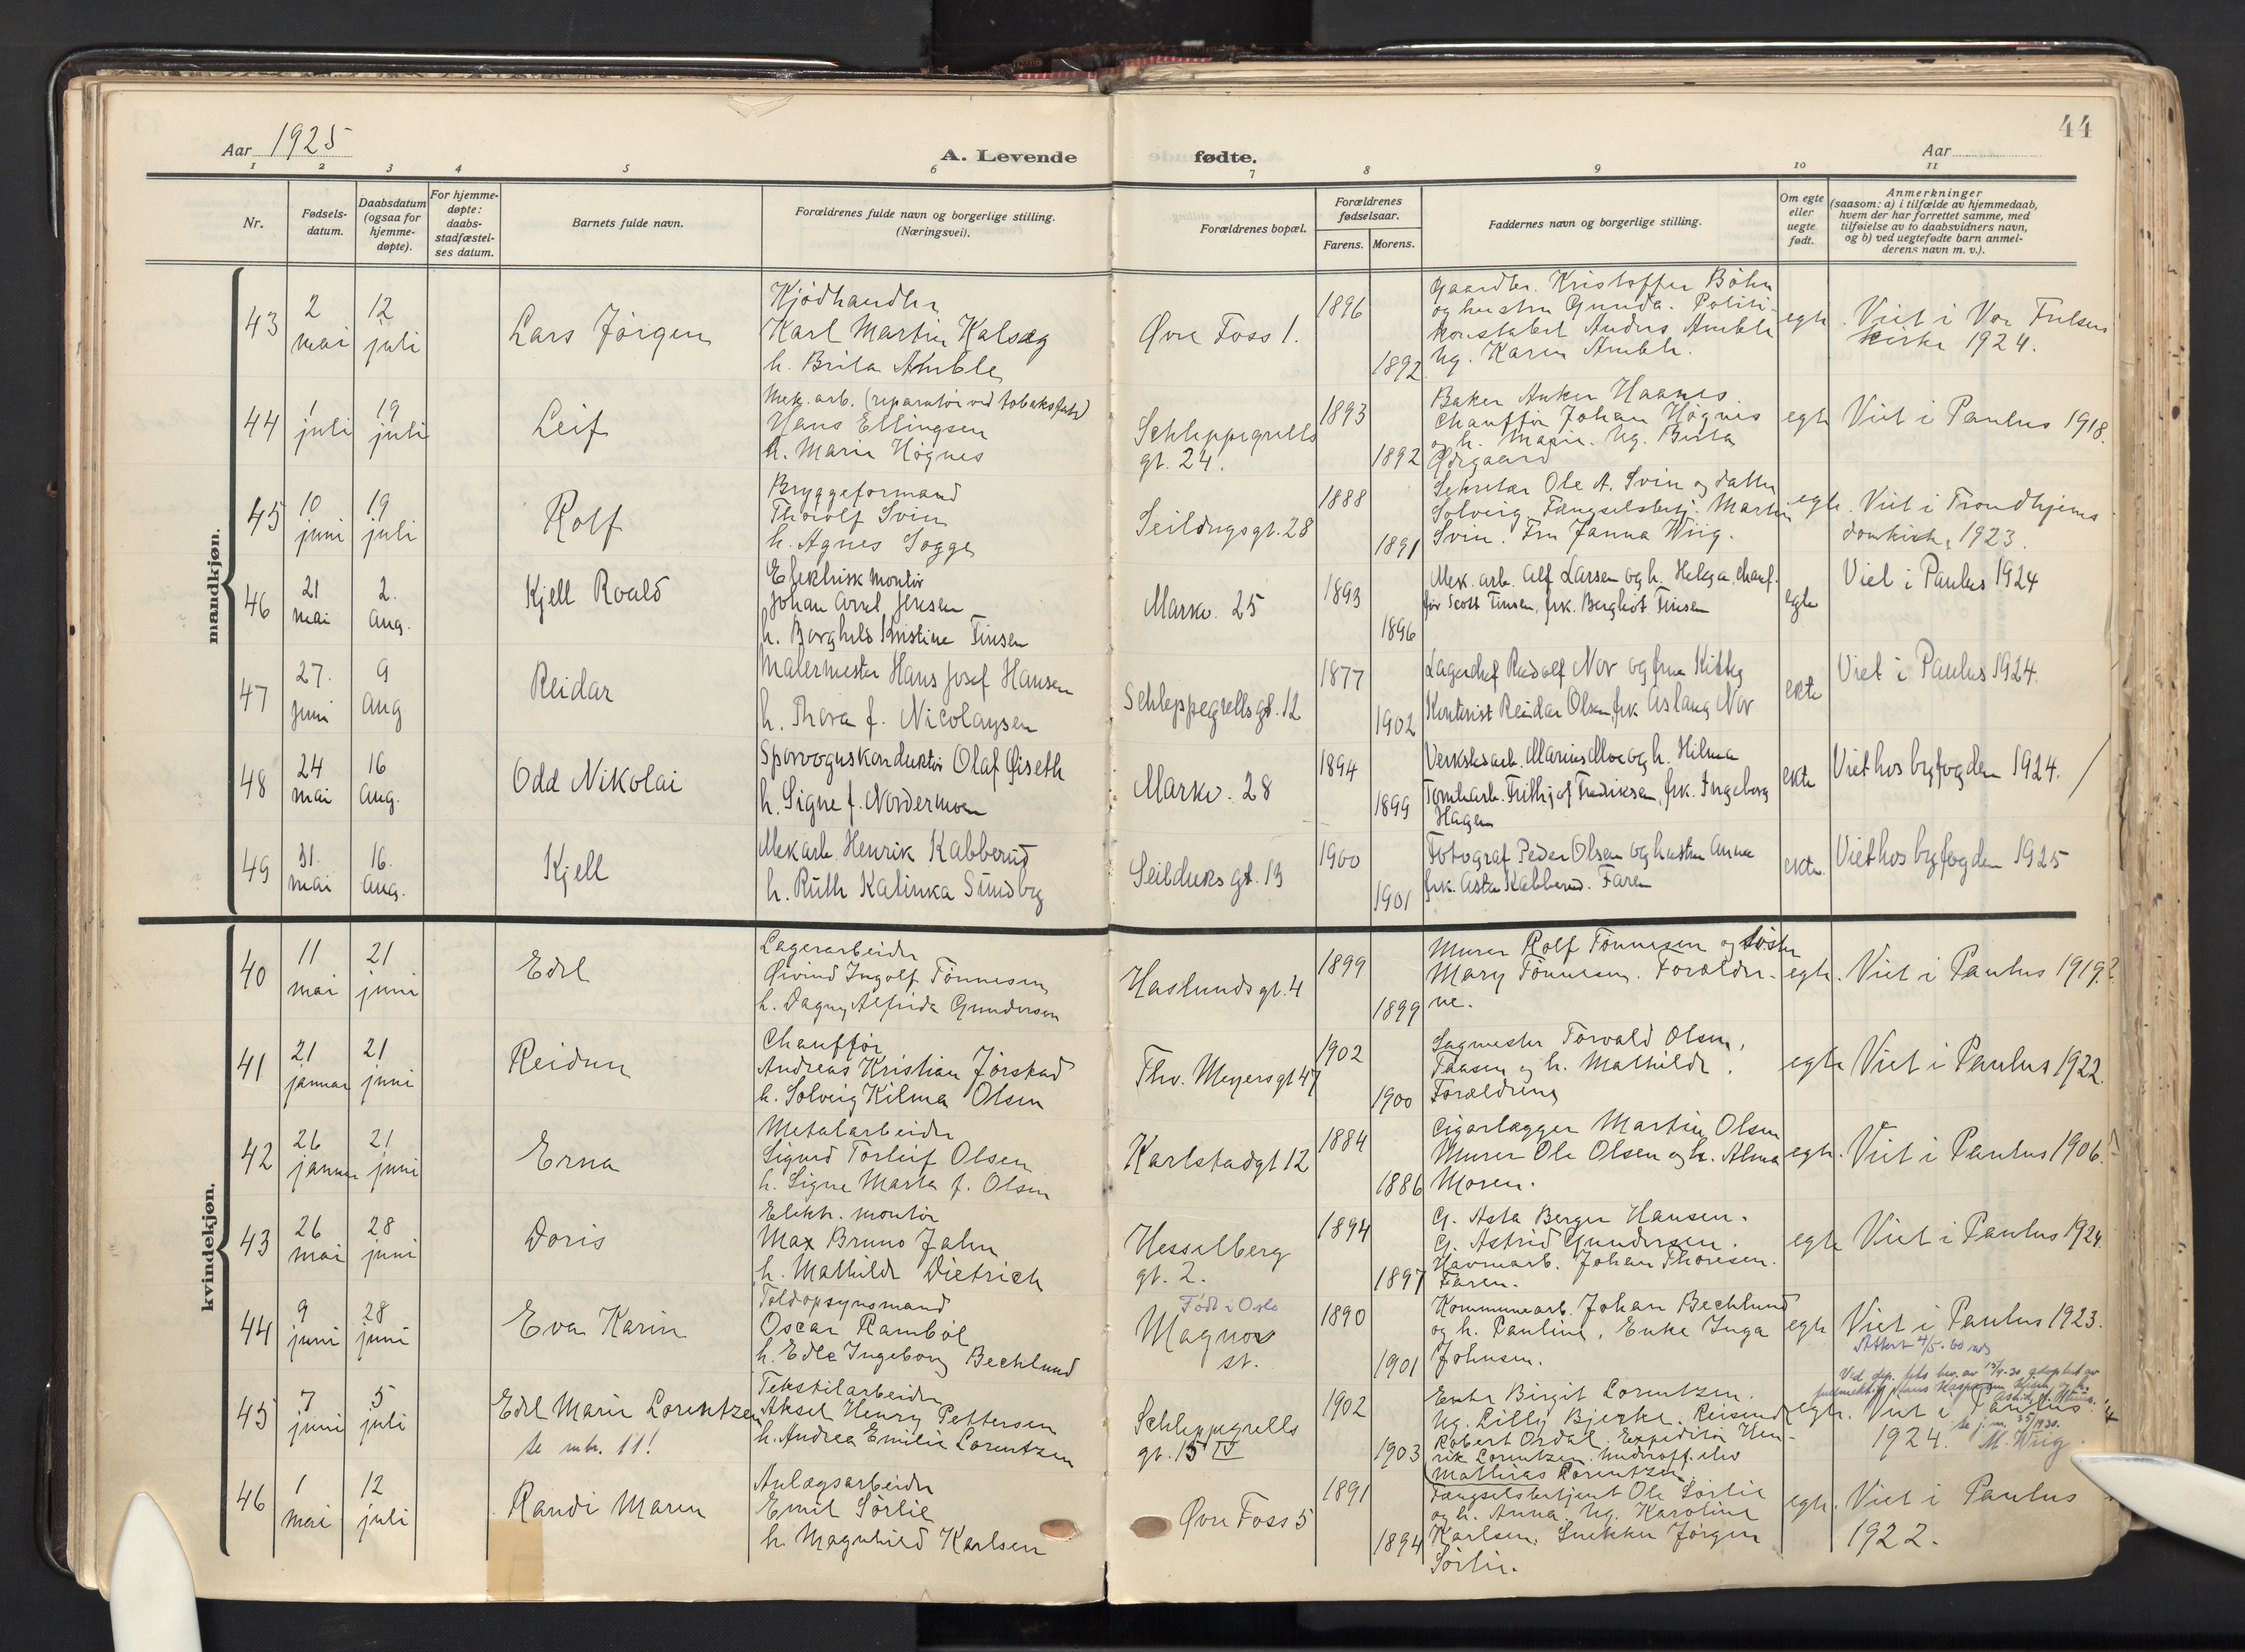 44
Aar 1925
A. Levende
fødte.
Aar
1 2 3 4 5 6 7 8 9 10 11
Nr.
Fødsels-
datum.
Daabsdatum
(ogsaa for
hjemme-
døpte).
For hjemme-
døpte:
daabs-
stadfæstel-
ses datum.
Barnets fulde navn.
Forældrenes fulde navn og borgerlige stilling.
(Næringsvei).
Forældrenes bopæl.
Forældrenes
fødselsaar.
Farens. Morens.
Faddernes navn og borgerlige stilling.
Om egte
eller
uegte
født.
Anmerkninger
(saasom: a) i tilfælde av hjemmedaab,
hvem der har forrettet samme, med
tilføielse av to daabsvidners navn,
og b) ved uegtefødte barn anmel-
derens navn m. v.).
mandkjøn.
43
2
mai
12
juli
Lars Jörgen
Kjödhandler
Karl Martin Kalsæg
h. Brita Amble
Øvre Foss 1.
1896
1892
Gaardbr. Kristoffer Böhn
og hustru Gunda. Politi-
konstabel Anders Amble
Ug. Karen Amble.
egte
Viet i Vor Frelsers
kirke 1924.
44
1
juli
19
juli
Leif
Mek. arb. (reparatör ved tobaksfabr)
Hans Ellingsen
h. Marie Högnes
Schleppegrells
gt. 24.
1893
1892
Baker Anker Haanes.
Chaufför Johan Högnes
og h. Marie. Ug. Berta
Ødegaard
egte
Viet i Paulus 1918.
45
10
juni
19
juli
Rolf
Bryggeformand
Thorolf Svin
h. Agnes Sogge
Seildugsgt. 28
1888
1891
Sekretær Ole A. Svin og datter
Solveig. Fængselsbetj. Martin
Svin. Fru Janna Wiig.
egte.
Viet i Trondhjems
domkirke, 1923.
46
21
mai
2.
aug.
Kjell Roald
Elektrisk montör
Johan Arvel Jensen
h. Borghild Kristine Finsen
Markv. 25
1893
1896
Mek. arb. Alf Larsen og h. Helga, chauf-
för Scott Finsen, frk. Bergliot Finsen
egte
Viet i Paulus 1924
47
27.
juni
9
aug
Reidar
Malermester Hans Josef Hansen
h. Thora f. Nicolaysen
Schleppegrellsgt. 12
1877
1902
Lagerchef Rudolf Nor og frue Kitty
Kontorist Reidar Olsen, frk Aslaug Nor
ekte
Viet i Paulus 1924.
48
24
mai
16
aug.
Odd Nikolai
Sporvognskonduktör Olaf Øiseth
h. Signe f. Nordermoen
Markv. 28
1894
1899
Verkstedarb. Marius Moe og h. Hilma
Tomtearb. Frithjof Fredriksen, frk. Ingeborg
Hagen
ekte
Viet hos byfogden 1924.
49
31.
mai
16.
aug.
Kjell
Mekarb. Henrik Kabberud
h. Ruth Katinka Sundby
Seilduksgt. 13
1900
1901
Fotograf Peder Olsen og hustru Anna
frk. Asta Kabberud. Faren
ekte.
Viet hos byfogden 1925
kvindekjøn.
40
11
mai
21
juni
Edel
Lagerarbeider
Øivind Ingolf Tönnesen
h. Dagny Alfrida Gundersen
Haslundsgt. 4
1899
1899
Murer Rolf Tönnesen og söster
Mary Tönnesen. Forældre-
ne.
egte.
Viet i Paulus 1919?
41
21
januar
21
juni
Reidun
Chaufför
Andreas Kristian Jörstad
h. Solveig Kilma Olsen
Thv. Meyersgt 47
1902
1900
Sagmester Torvald Olsen,
Taasen og h. Mathilde.
Forældrene
egte
Viet i Paulus 1922.
42
26
januar
21
juni
Erna
Metalarbeider
Sigurd Torleif Olsen
h. Signe Marta f. Olsen
Karlstadgt 12
1884
1886
Cigarlagger Martin Olsen
Murer Ole Olsen og h. Alma
Moren.
egte.
Viet i Paulus 1906.?
43
26
mai
28
juni
Doris
Elektr. montör
Max Bruno Jahn
h. Mathilde Dietrich
Hesselberg
gt. 2.
1894
1897
G. Asta Berger Hansen.
G. Astrid Gundersen.
Havnearb. Johan Thoresen.
Faren.
egte
Viet i Paulus 1924.
44
9
juni
28
juni
Eva Karin
Toldopsynsmand
Oscar Ramböl
h. Edle Ingeborg Bechlund
Född i Oslo
Magnor
st.
1890
1901
Kommunearb. Johan Bechlund
og h. Pauline. Enke Inga
Johnsen.
egte
Viet i Paulus 1923.
Attest 4/5-60
45
7
juni
5
juli
Edel Marie Lorentzen
se nr. 11!
Tekstilarbeider
Aksel Henry Pettersen
h. Andrea Emilie Lorentzen
Schleppegrells
gt. 15 IV
1902
1903
Enke Birgit Lorentzen.
Ug. Lilly Bjerke. Reisende
Robert Ordal. Expeditör Hen-
rik Lorentzen. Underoff. elev
Mathias Lorentzen.
egte.
Viet i Paulus
1924.
Ved dep. fyls. bev. av 13/9-30 adoptert av
M. Wiig
46
1
mai
12
juli
Randi Maren
Anlægsarbeider
Emil Sörlie
h. Magnhild Karlsen
Øvre Foss 5
1891
1894
Fængselsbetjent Ole Sörlie
og h. Anna. Ug. Karoline
Karlsen. Snekker Jörgen
Sörlie.
egte.
Viet i Paulus
1922.